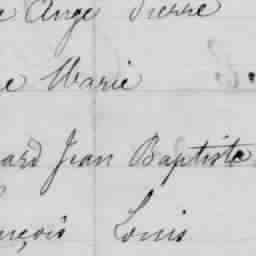 e Ange Pierre
e Marie
ard Jean Baptiste
nçois Louis